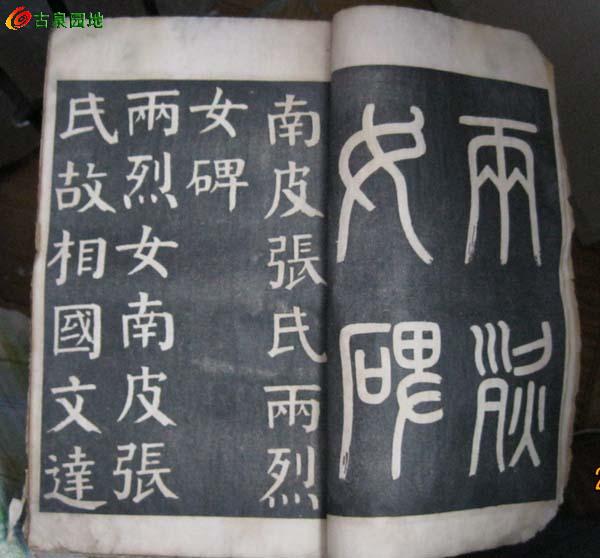 古泉园地
兩烈
女碑
南皮張氏兩烈
女碑
兩烈女南皮張
氏故相國文達